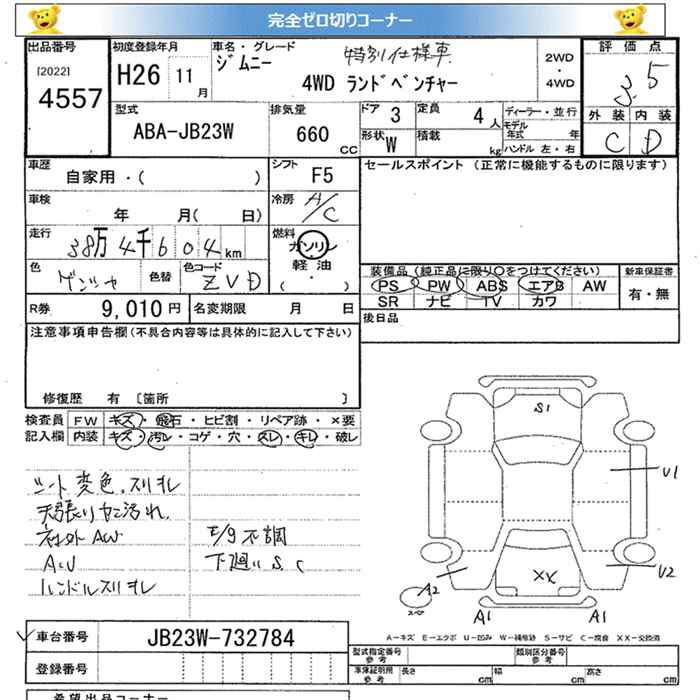 完全ゼロ切りコーナー
出品番号 初度登録年月 車名・グレード 特別仕様車 2WD ・ 4WD 評価点
[2022] 4557 H26 11月 ジムニー 4WD ランドベンチャー 3.5
型式 排気量 ドア 3 定員 4人 ディーラー・並行 外装 内装
ABA-JB23W 660CC 形状 W 積載 kg モデル年式 年 C D
ハンドル 左・右
車歴 シフト セールスポイント (正常に機能するものに限ります)
自家用・( ) F5
車検 年 月( 日) 冷房 A/C
走行 38万4千604km 燃料 ガソリン
軽油
( ・ )
色 色替 色コード ZVD
装備品 (純正品に限り○をつけてください) 新車保証書
PS PW ABS エアB AW 有・無
SR ナビ TV カワ
R券 9,010円 名変期限 月 日 後日品
注意事項申告欄(不具合内容等は具体的に記入して下さい)
修復歴 有 [箇所 ]
検査員 FW キズ・飛石・ヒビ割・リペア跡・×要
記入欄 内装 キズ・汚レ・コゲ・穴・スレ・キレ・破レ
シート変色、スリキレ
天張りヤニ汚れ
社外AW
ハンドルスリキレ
不調
下廻りS.C
S1
U1
XX
U2
A2
A1 A1
A-キズ E-エクボ U-凹み W-補修跡 S-サビ C-腐食 XX-交換済
車台番号 JB23W-732784
登録番号
型式指定番号 参考 類別区分番号 参考
車庫証明用 参考 長さ cm 幅 cm 高さ cm
希望出品コーナー